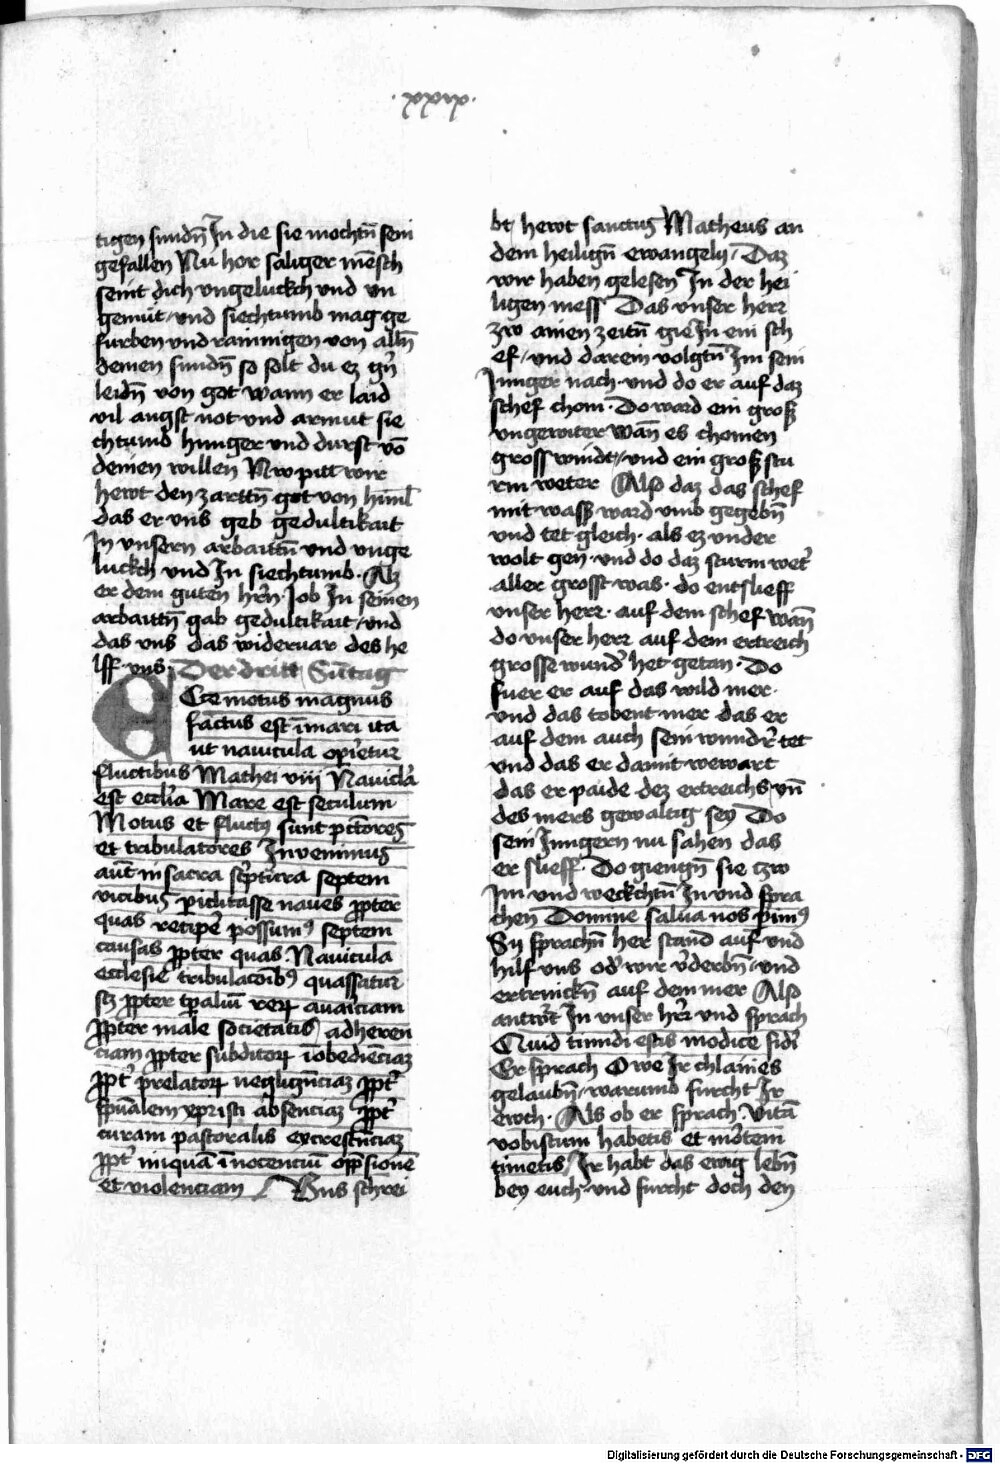 .xxix.
tigen sundn̄ In die sie mochtn̄ sein
gefallen Nu hor saliger mēsch
seint dich vngeluckch vnd vn
gemüt vnd siechtumb mag ge
furben vnd rainnigen von alln̄
deinen sundn̄ so solt du ez gern
leidn̄ von got wann er laid
vil angst not vnd armut sie
chtumb hunger vnd durst vō
deinen willen Nw pitt wir
hewt den zarttn̄ got von himl
das er vns geb gedultikait
In vnsern arbaittn̄ vnd vnge
luckch vnd In siechtumb. Alz
er dem guten hr̄n Iob In seinen
arbaittn̄ gab gedultikait vnd
das vns das wideruar des he
lff vns Der dritt Sūtag
Ecce motus magnus
factus est ī mari ita
ut nauicula operietur
fluctibus Mathei viij Nauicl'a
est eccl'ia Mare est seculum
Motus et fluctus sunt pctores
et tribulatores Inuenimus
aūt in sacra scptura septem
vicibus piclitasse naues ppter
quas recipe possumus septem
causas ppter quas. Nauicula
ecclesie tribulacōibus quassatur
sz ppter tpaliū rerum auariciam
ppter male societatis adheren
ciam ppter subditorum īobedieciaz
ppt' prelatorum necligenciaz ppt'
spūalem xpristi absenciaz ppt'
curam pastoralis excrescenciaz
ppt' iniquā īnocentiū oppsionē
et violenciam Vns schrei
bt hewt sanctus Matheus an
dem heilign̄ ewangely Daz
wir haben gelesen In der hei
ligen mess Das vnser herr
zw ainen zeitn̄ gie In ein sch
ef vnd darein volgtn̄ Im sein
Iunger nach vnd do er auf daz
schef chom. Do ward ein groß
vngewiter wān es chomen
gross windt vnd ein groß stu
rm weter Also daz das schef
mit wasser ward vmb gegebn̄
vnd tet gleich. als ez vnder
wolt gen vnd do daz sturm wet'
aller grosst was. do entslieff
vnser herr. auf dem schef wān
do vnser herr auf dem ertreich
grosse wund' het getan. Do
fuer er auf das wild mer.
vnd das tobent mer das er
auf dem auch sein wundr' tet
vnd das er damit bewart
das er paide dez ertreichs vn̄
des mers gewaltig sey Do
sein Iungern nu sahen das
er slieff. Do giengn̄ sie tzw
Im vnd weckchtn̄ In vnd spra
chen Domine salua nos pimus
Sy sprachn̄ her stand auf vnd
hilf vns od' wir v'derbn̄ vnd
ertrinckn̄ auf dem mer Also
antwrt In vnser hr̄r vnd sprach
Quid timidi estis modice fidi
Er sprach O we Ir chlaines
gelaubn̄ warumb furcht Ir
ewch. Als ob er sprach. Vitā
vobiscum habetis et mortem
timetis Ir habt das ewig lebn̄
bey euch vnd furcht doch den
Digitalisierung gefördert durch die Deutsche Forschungsgemeinschaft - DFG